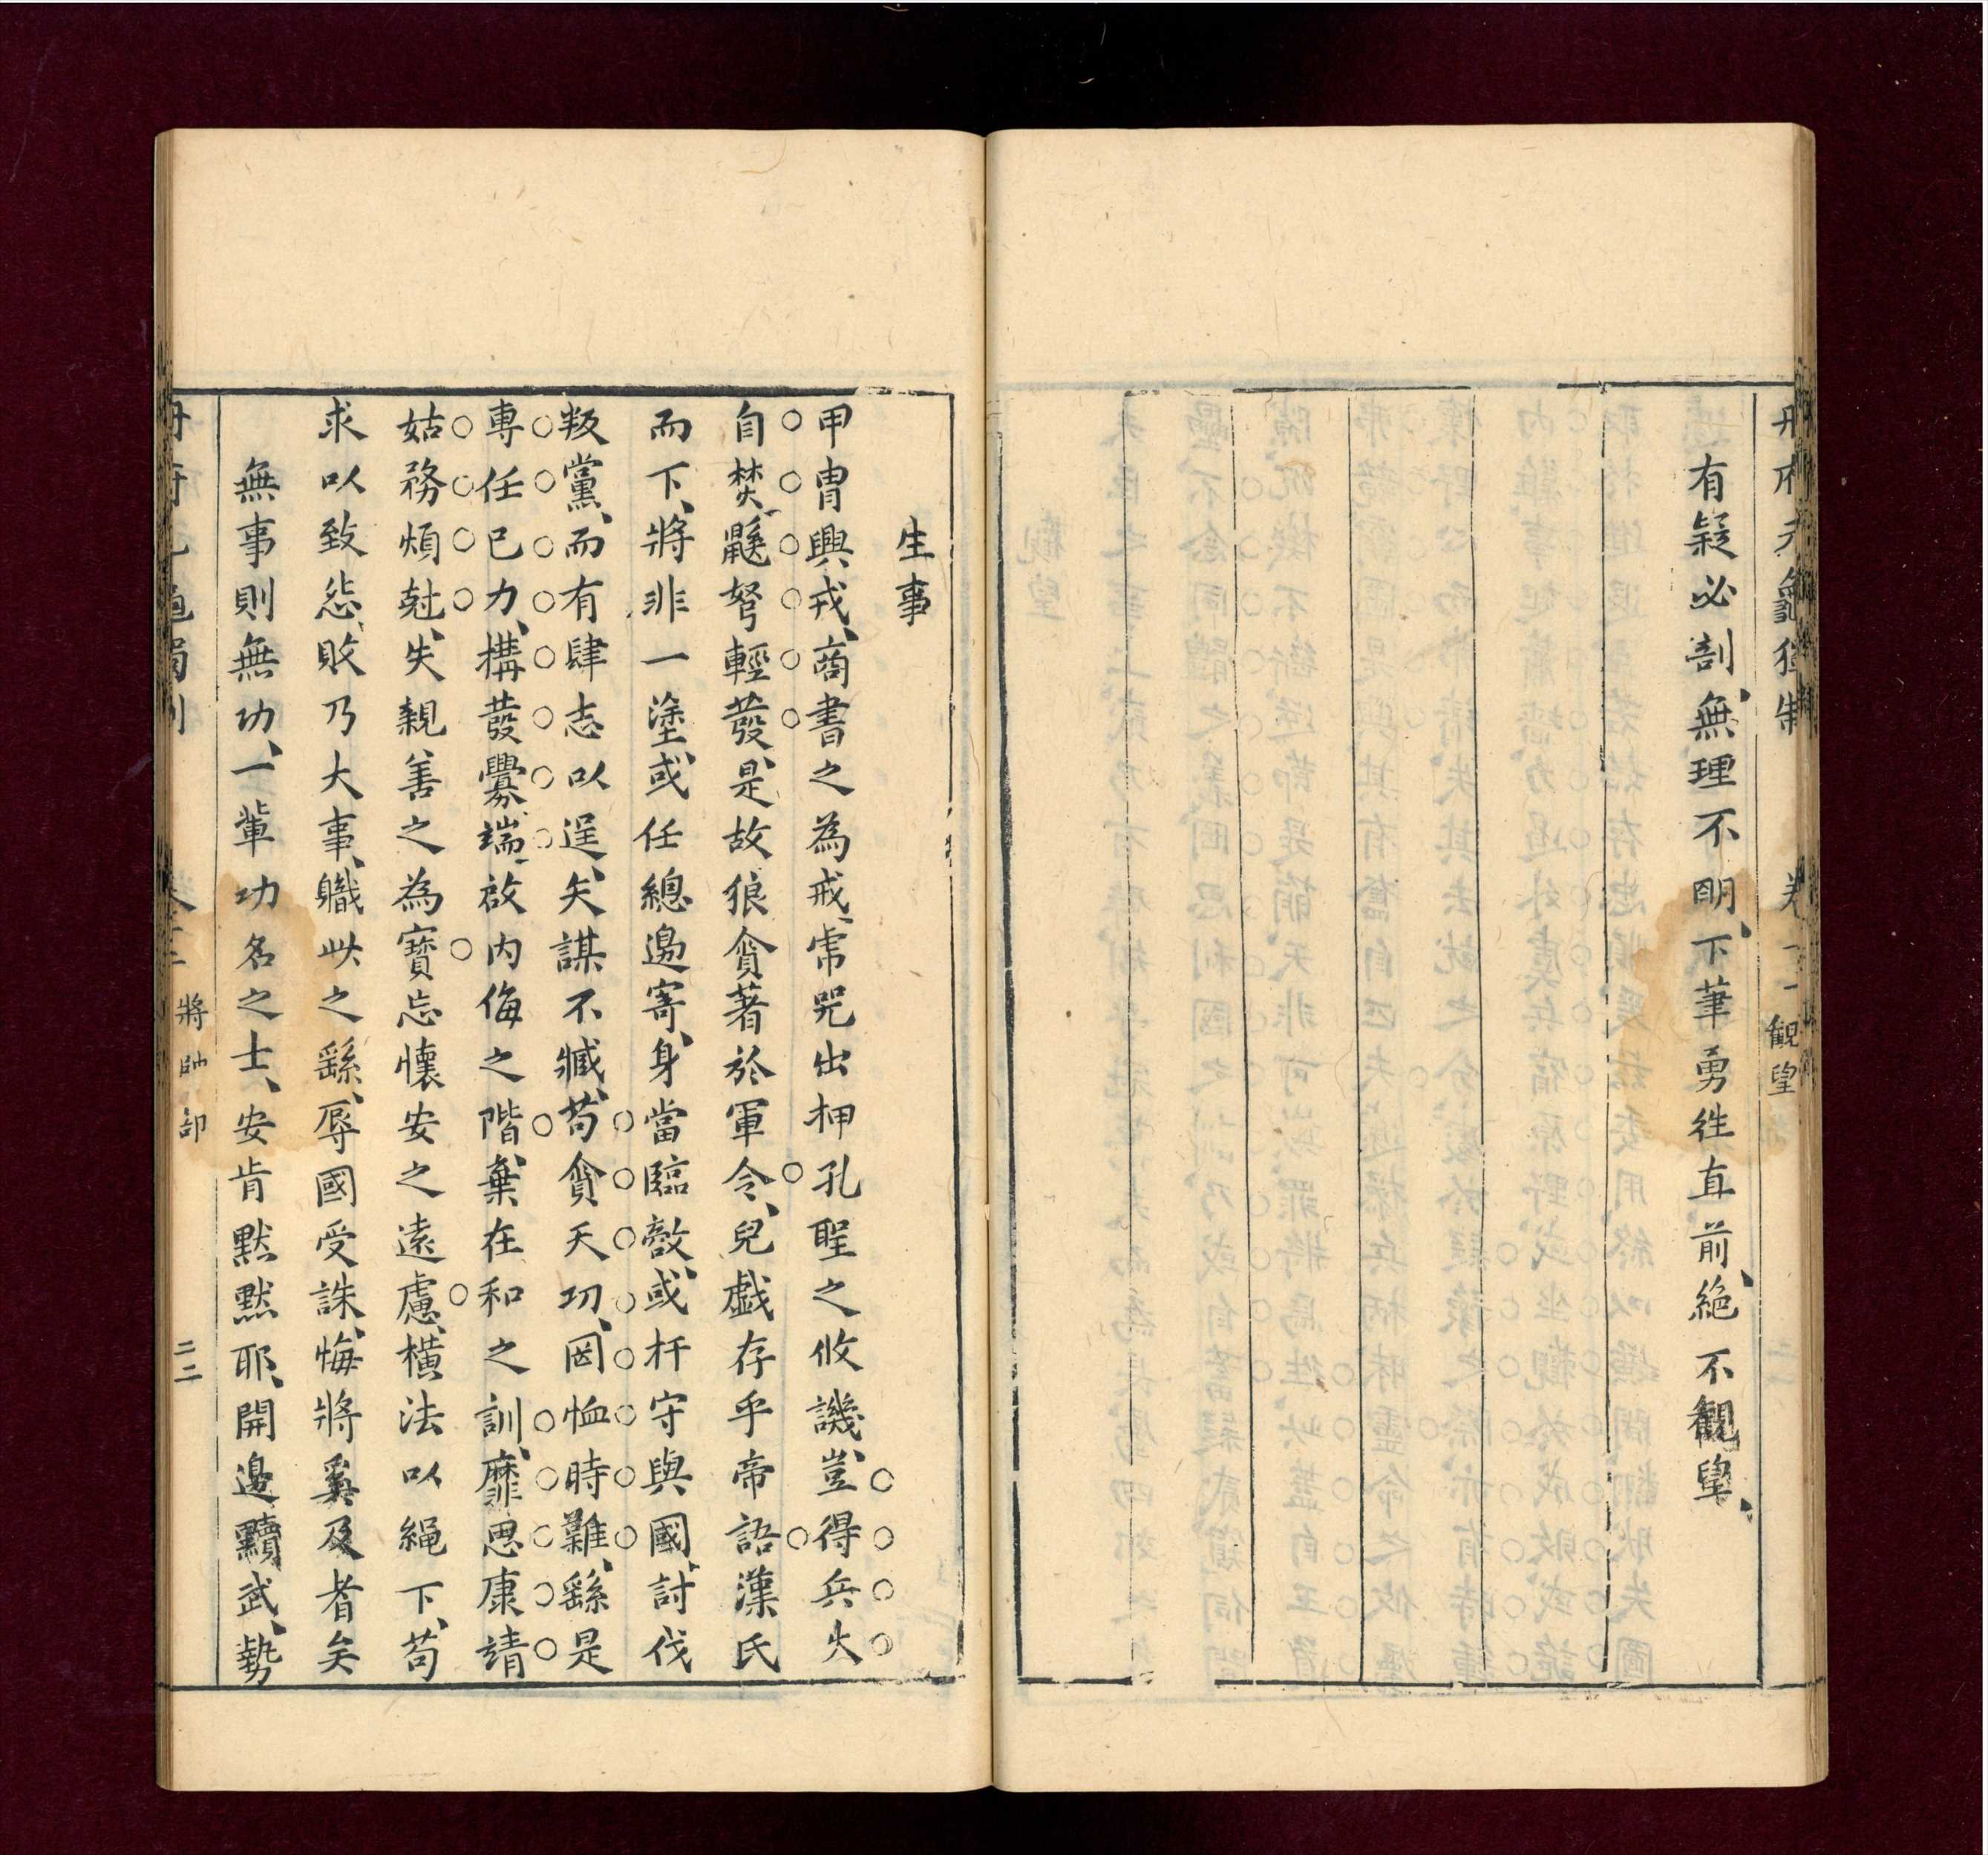 冊府元龜獨制 卷十一 觀望
有疑必剖、無理不明、下筆勇往直前、絕不觀望、
生事
甲冑興戎、商書之為戒、虎兕出押孔聖之攸譏、豈得兵火
自焚、鼷弩輕發、是故狼貪著於軍令、兒戲存乎帝語漢氏
而下、將非一塗、或任總邊寄、身當臨敵、或扞守與國、討伐
叛黨、而有肆志以逞、矢謀不臧、苟貪天功、罔恤時難、繇是
專任已力、構發釁端、啟內侮之階、棄在和之訓、靡思康靖
姑務煩尅、失親善之為寶忘懷安之遠慮、橫法以繩下、苟
求以致怨、敗乃大事、職此之繇、辱國受誅、悔將奚及者矣
無事則無功、一輩功名之士、安肯默默耶、開邊黷武、勢
將帥部 二二